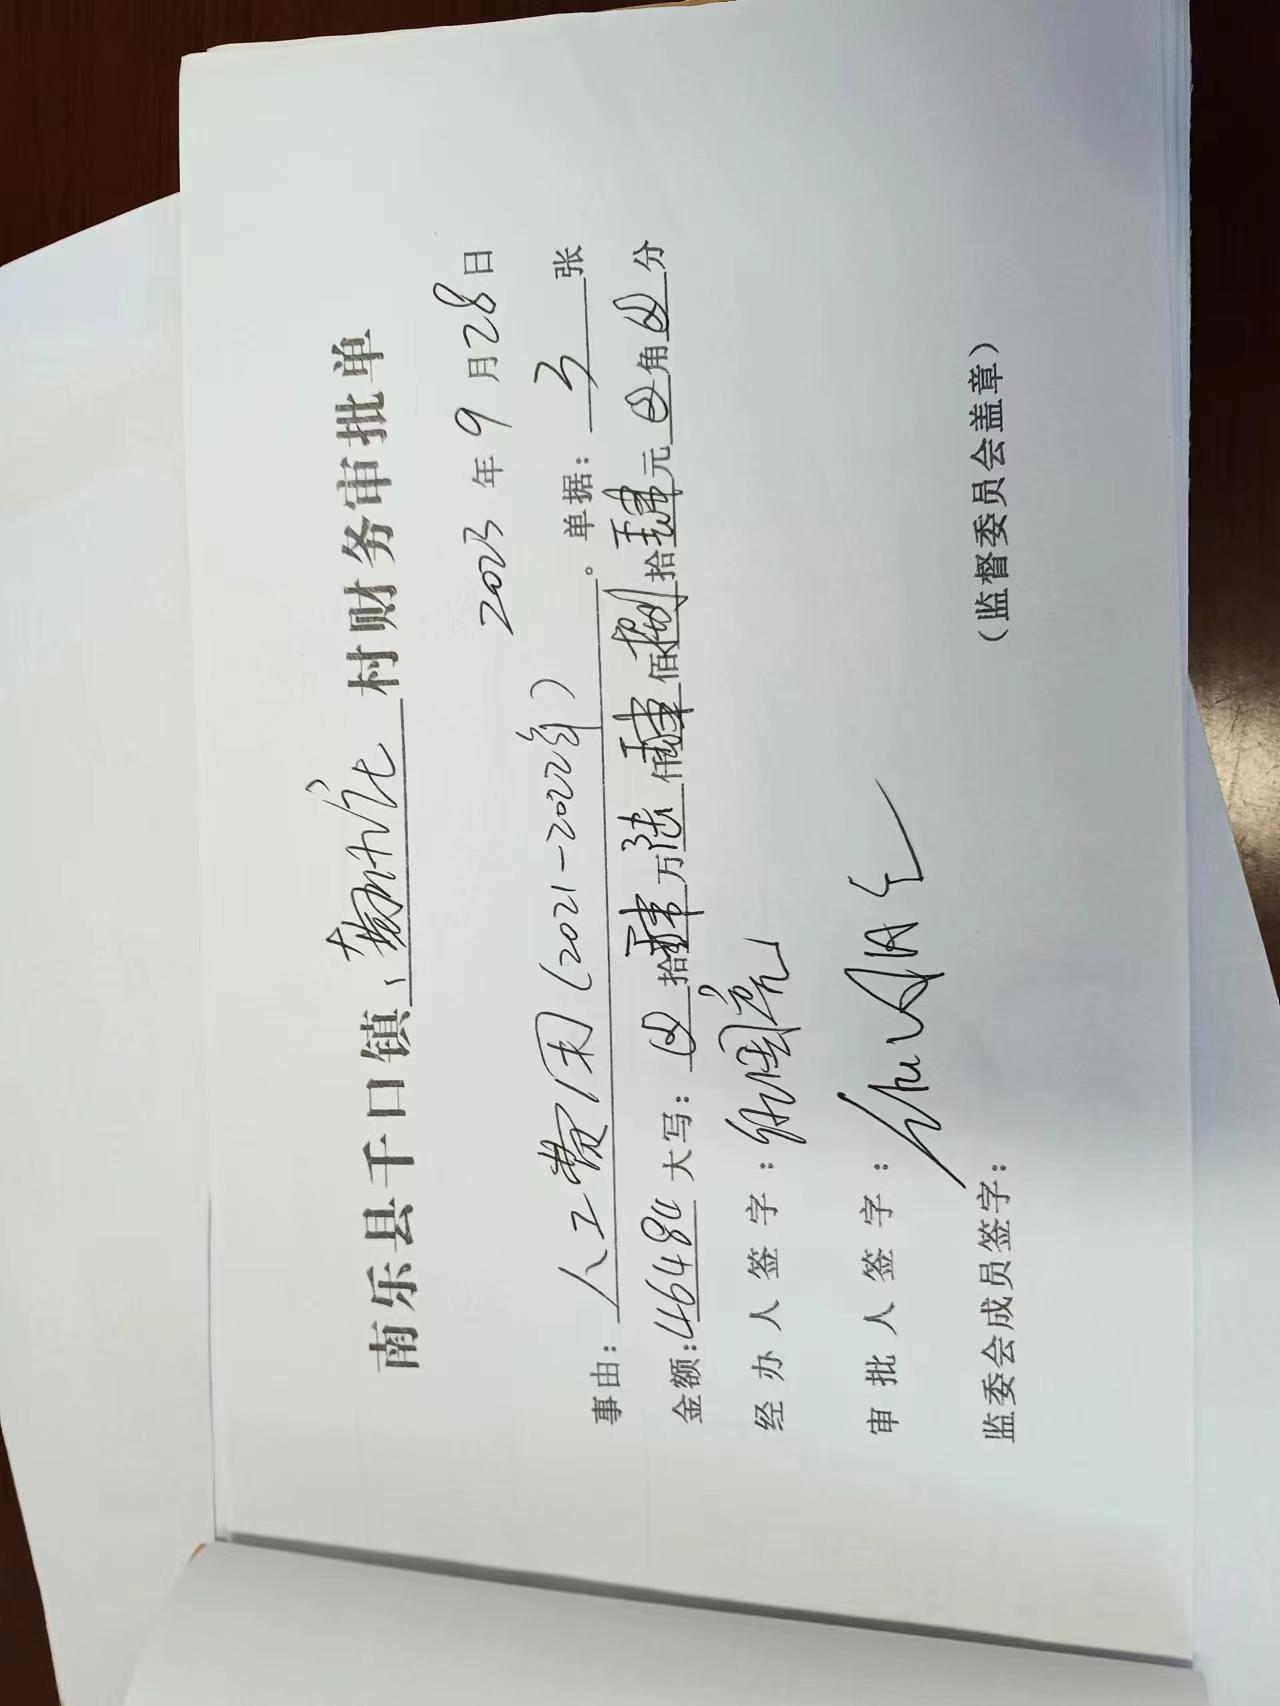 南乐县千口镇 村财务审批单
2023年9月28日
事由：人工费用（2021-2022年）。单据：3张
金额：46484 大写：⊗拾肆万陆仟肆佰捌拾肆元⊗角⊗分
经办人签字：
审批人签字：
监委会成员签字： （监督委员会盖章）